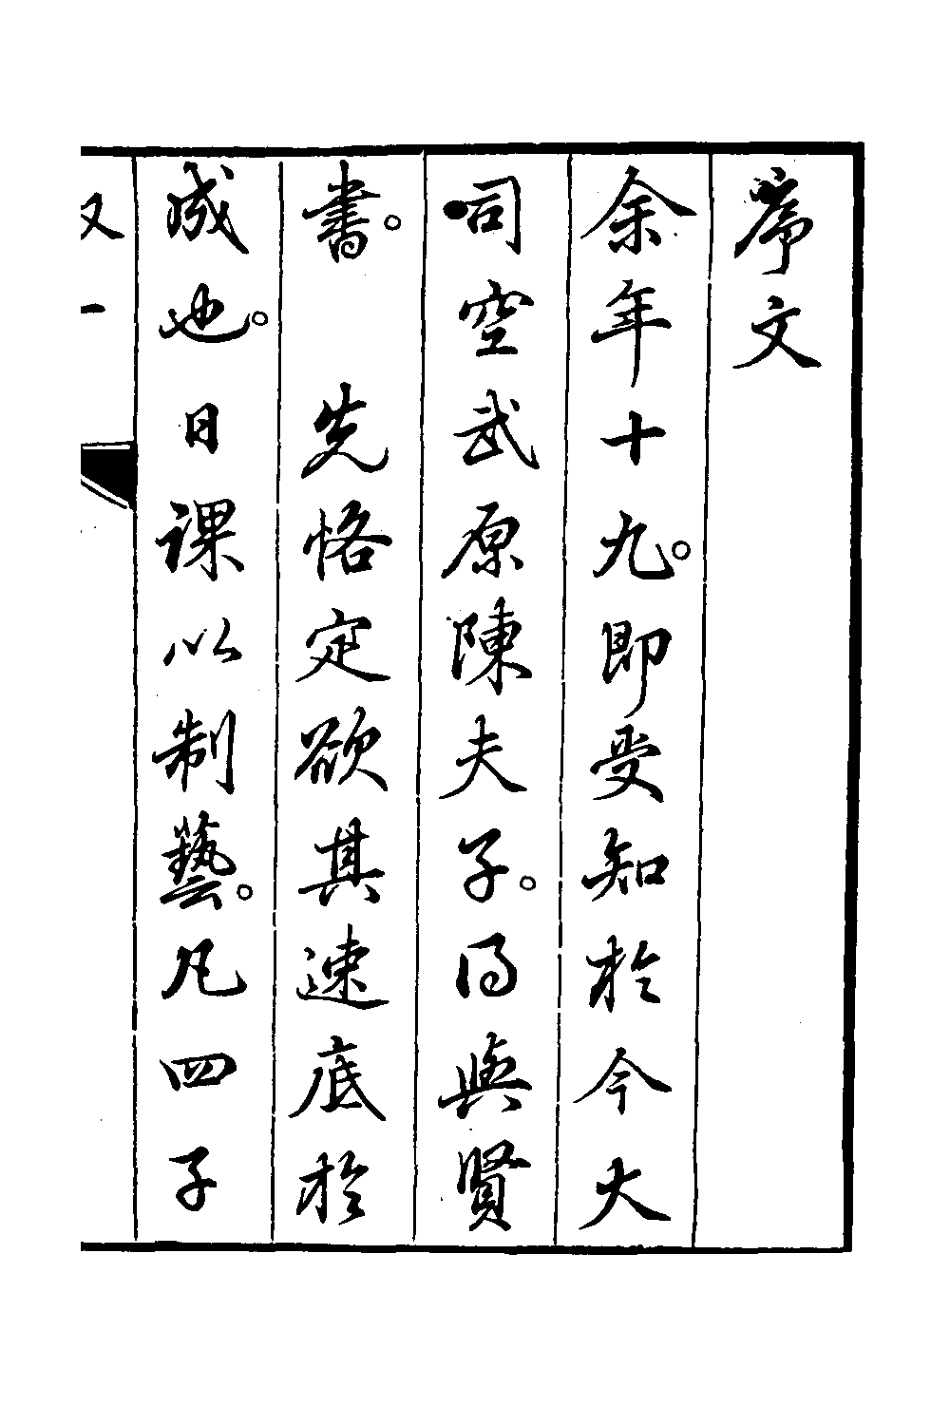 序文
余年十九。即受知於今大
司空武原陳夫子。得與賢
書。先恪定欲其速底於
成也。日課以制藝。凡四子